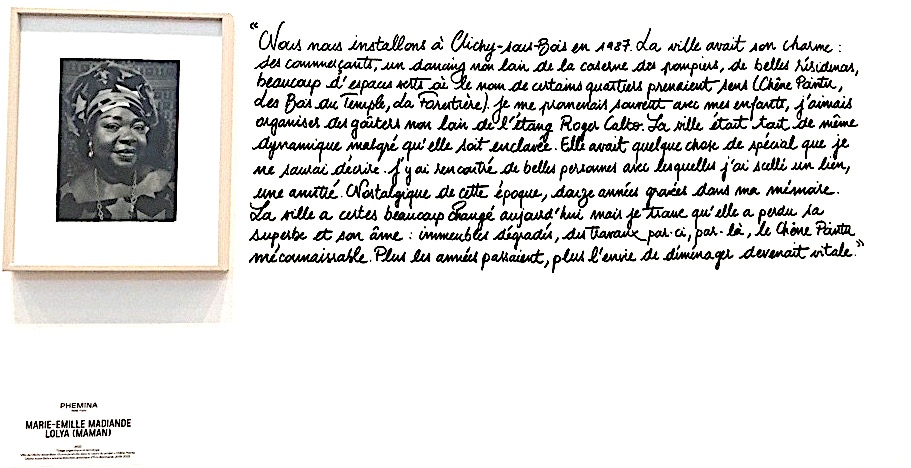 "Nous nous installons à Clichy-sous-Bois en 1987. La ville avait son charme :
ses commerçants, un dancing non loin de la caserne des pompiers, de belles résidences,
beaucoup d'espaces verts où le nom de certains quartiers prenaient sens (Chêne Pointu,
les Bois du Temple, La Forestière). Je me promenais souvent avec mes enfants, j'aimais
organiser des goûters non loin de l'étang Roger Calto. La ville était tout de même
dynamique malgré qu'elle soit enclavée. Elle avait quelque chose de spécial que je
ne saurai décrire. J'y ai rencontré de belles personnes avec lesquelles j'ai scellé un lien,
une amitié. Nostalgique de cette époque, douze années gravées dans ma mémoire.
La ville a certes beaucoup changé aujourd'hui mais je trouve qu'elle a perdu sa
superbe et son âme : immeubles dégradés, des travaux par-ci, par-là, le Chêne Pointu
méconnaissable. Plus les années passaient, plus l'envie de déménager devenait vitale."
PHEMINA
MARIE-EMILLE MADIANDE
LOLYA (MAMAN)